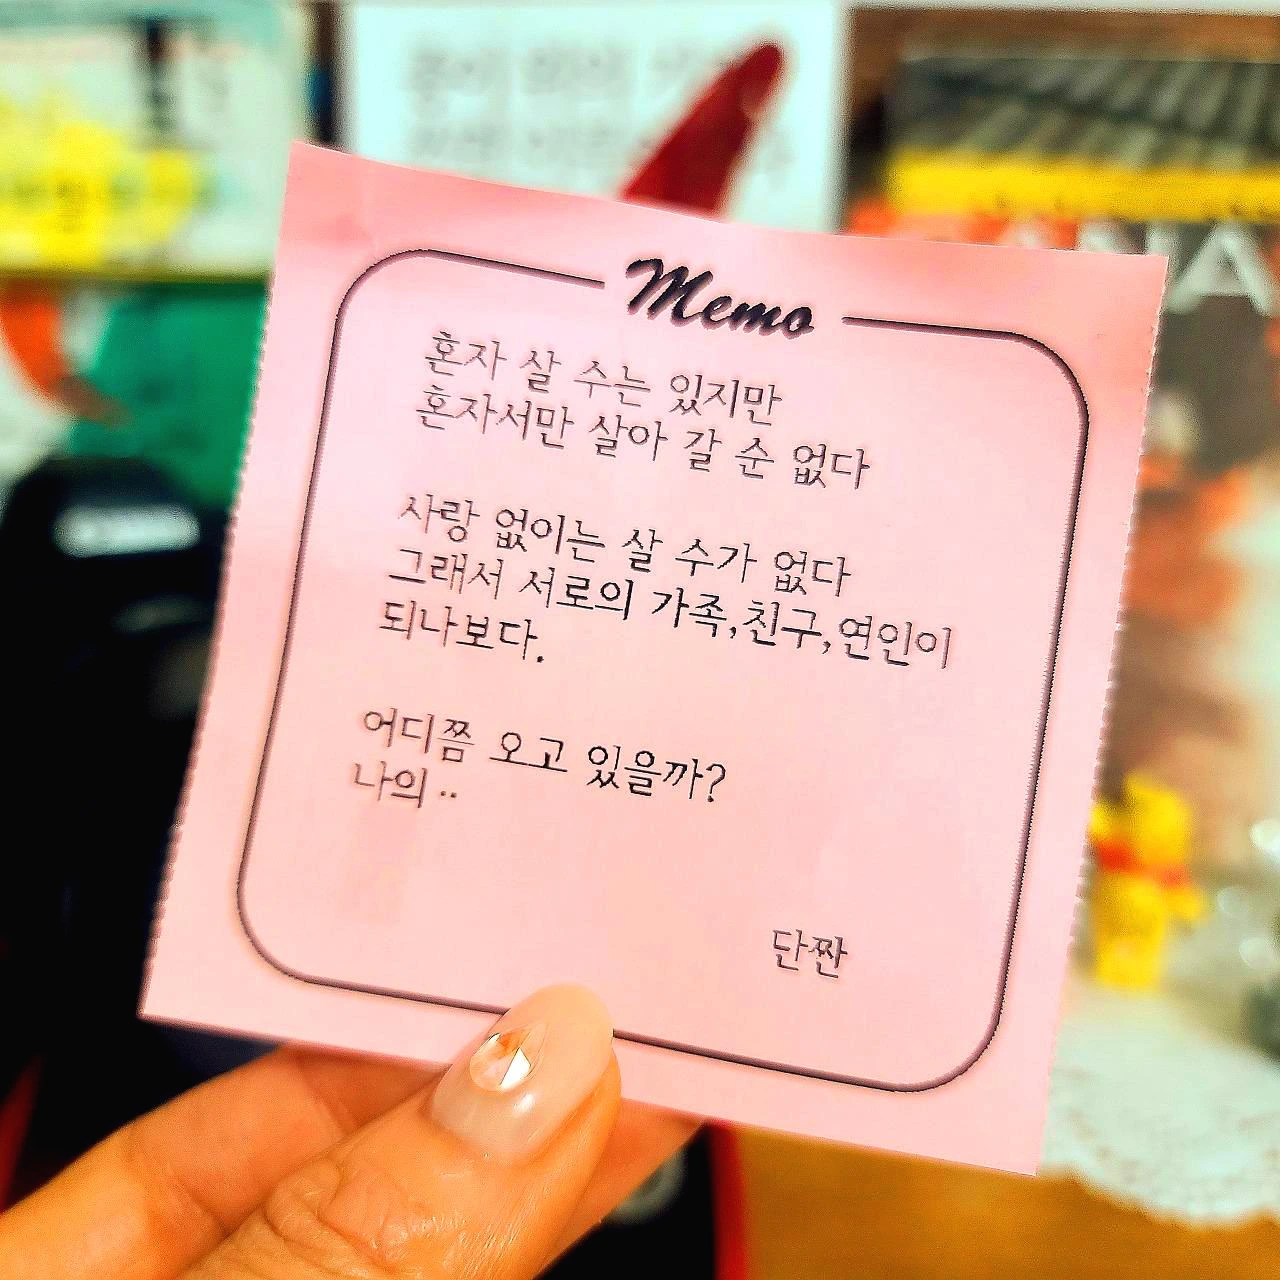 Memo
혼자 살 수는 있지만
혼자서만 살아 갈 순 없다
사랑 없이는 살 수가 없다
그래서 서로의 가족,친구,연인이
되나보다.
어디쯤 오고 있을까?
나의··
단짠